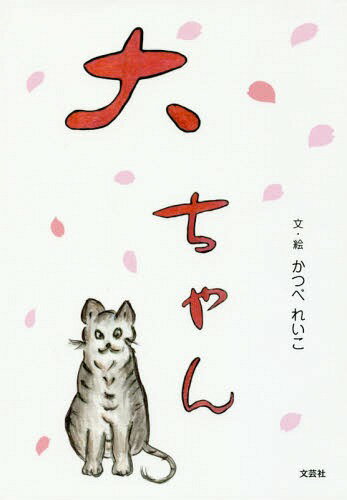 大ちゃん
文・絵 かつべ れいこ
文芸社